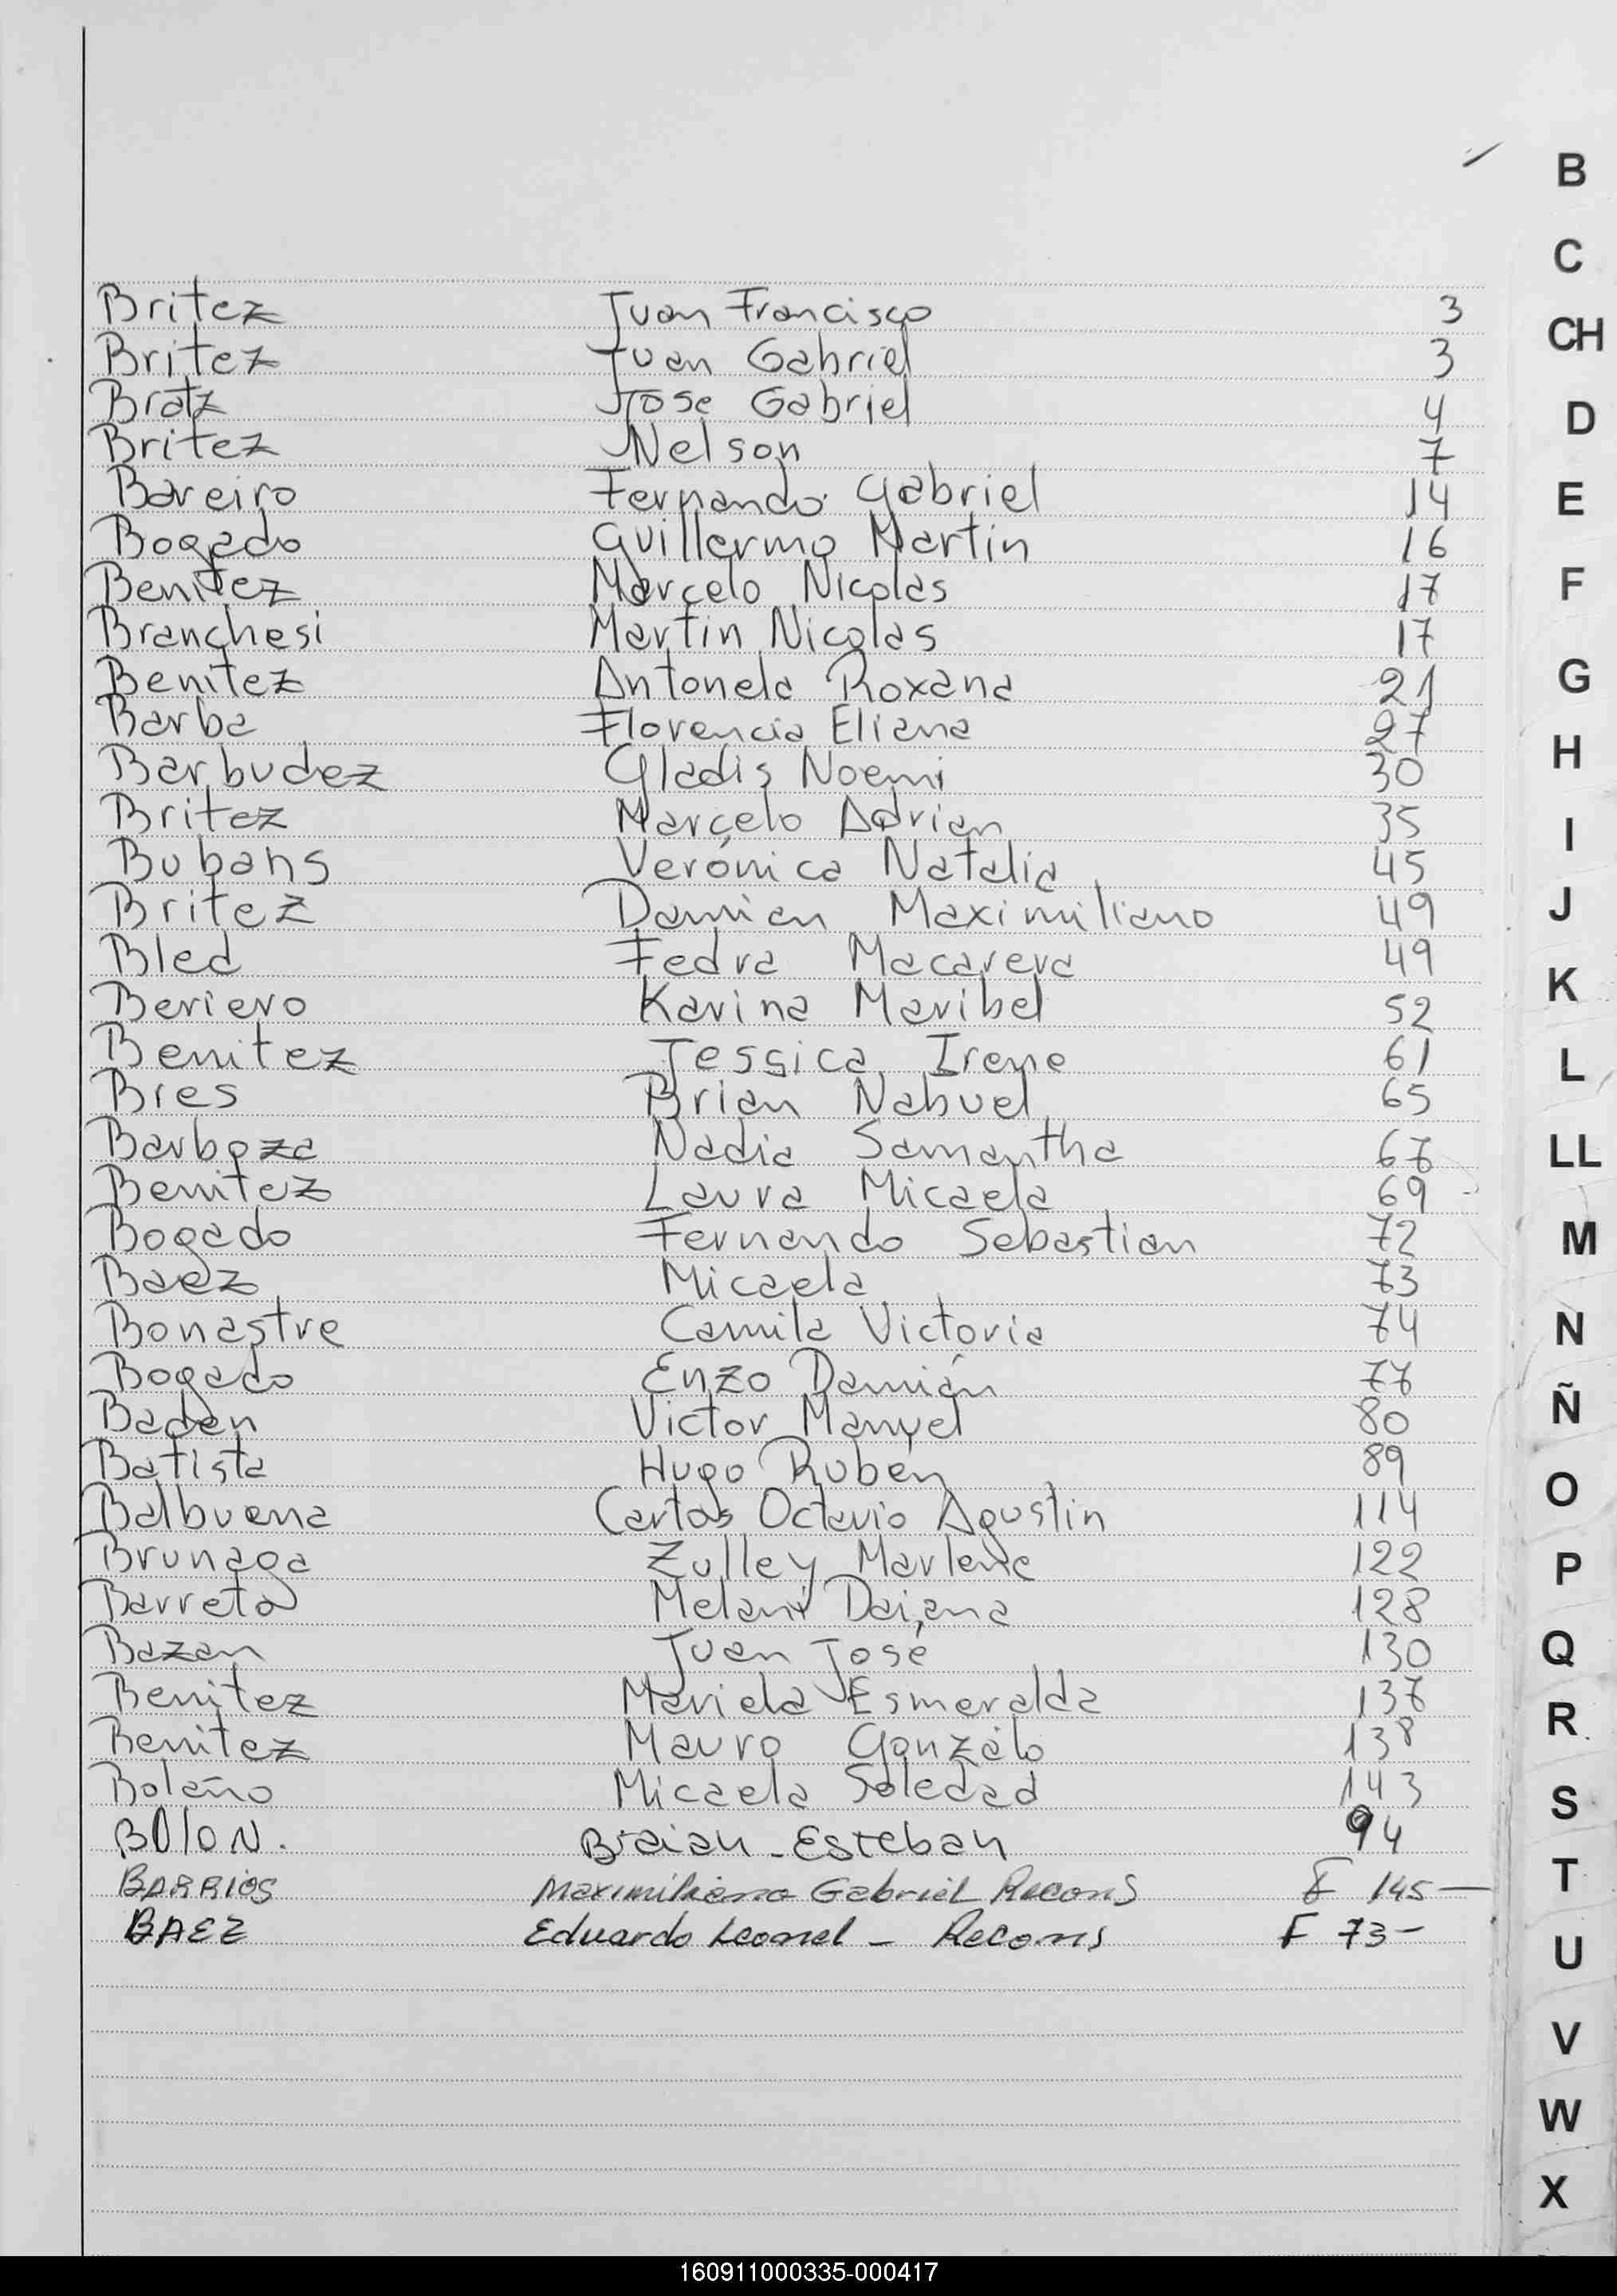 Britez Juan Francisco 3
Britez Juan Gabriel 3
Bratz Jose Gabriel 4
Britez Nelson 7
Bareiro Fernando Gabriel 14
Bogado Guillermo Martin 16
Benitez Marcelo Nicolas 17
Branchesi Martin Nicolas 17
Benitez Antonela Roxana 21
Barba Florencia Eliana 27
Barbudez Gladis Noemi 30
Britez Marcelo Adrian 35
Bubans Verónica Natalia 45
Britez Damian Maximiliano 49
Bled Fedra Macarera 49
Beriero Karina Maribel 52
Benitez Jessica Irene 61
Bres Brian Nahuel 65
Barboza Nadia Samantha 67
Benitez Laura Micaela 69
Bogado Fernando Sebastian 72
Baez Micaela 73
Bonastre Camila Victoria 74
Bogado Enzo Damián 77
Baden Victor Manuel 80
Batista Hugo Ruben 89
Balbuena Carlos Octavio Agustin 114
Brunaga Zulley Marlene 122
Barreto Melani Daiana 128
Bazan Juan José 130
Benitez Mariela Esmeralda 137
Benitez Mauro Gonzalo 138
Bolaño Micaela Soledad 143
BOlON. Braian - Esteban 94
BARRIOS Maximiliano Gabriel Recons F 145 —
BAEZ Eduardo Leonel - Recons F 73 -
B
C
CH
D
E
F
G
H
I
J
K
L
LL
M
N
Ñ
O
P
Q
R
S
T
U
V
W
X
160911000335-000417